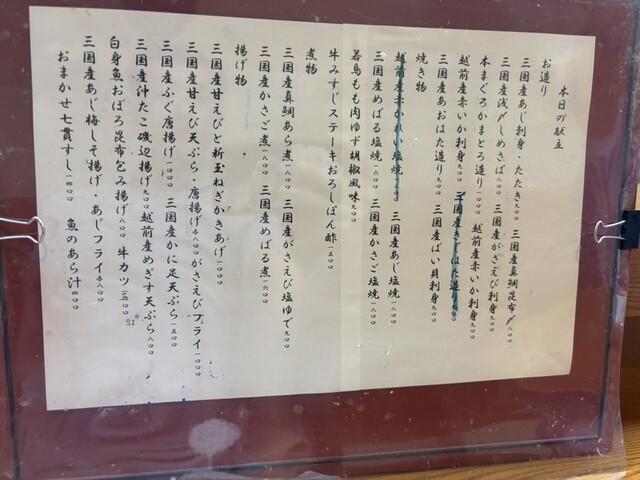 本日の献立
お造り
三国産あじ刺身・たたき九〇〇 三国産真鯛昆布〆八〇〇
三国産浅〆しめさば八〇〇 三国産がざえび刺身九〇〇
本まぐろかまとろ造り一八〇〇 越前産赤いか刺身九〇〇
越前産赤いか刺身九〇〇
三国産あおはた造り九〇〇 三国産ばい貝刺身九〇〇
焼き物
越前産赤かれい塩焼
三国産めばる塩焼一六〇〇 三国産あじ塩焼一八〇〇
若鳥もも肉ゆず胡椒風味九〇〇 三国産かさご塩焼一八〇〇
牛みすじステーキおろしぽん酢一五〇〇
煮物
三国産真鯛あら煮一八〇〇 三国産がさえび塩ゆで九〇〇
三国産かさご煮一八〇〇 三国産めばる煮一六〇〇
揚げ物
三国産甘えびと新玉ねぎかきあげ一〇〇〇
三国産甘えび天ぷら・唐揚げ各八〇〇がさえびフライ一〇〇〇
三国産ふぐ唐揚げ一一〇〇 三国産かに足天ぷら一五〇〇
三国産沖たこ磯辺揚げ九〇〇越前産めぎす天ぷら八〇〇
白身魚おぼろ昆布包み揚げ八〇〇 牛カツ一五〇〇
三国産あじ梅しそ揚げ・あじフライ各八〇〇
おまかせ七貫すし一四〇〇 魚のあら汁四〇〇